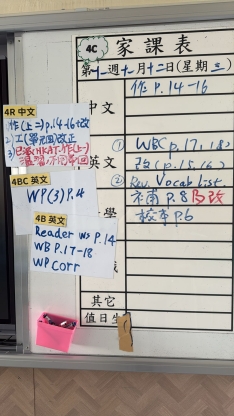 4C 家課表
第十一週十一月十二日(星期三)
中文
作 P.14-16
英文
① WBC p.17,18)
改(p.15,16)
② Rev. Vocab list
學
補 P.8 改
校本 P.6
其它
值日生
4R 中文
作(上二)p.14-16+改
改正
4BC 英文
WP(3) P.4
4B 英文
Reader ws P.14
WB P.17-18
WP Corr